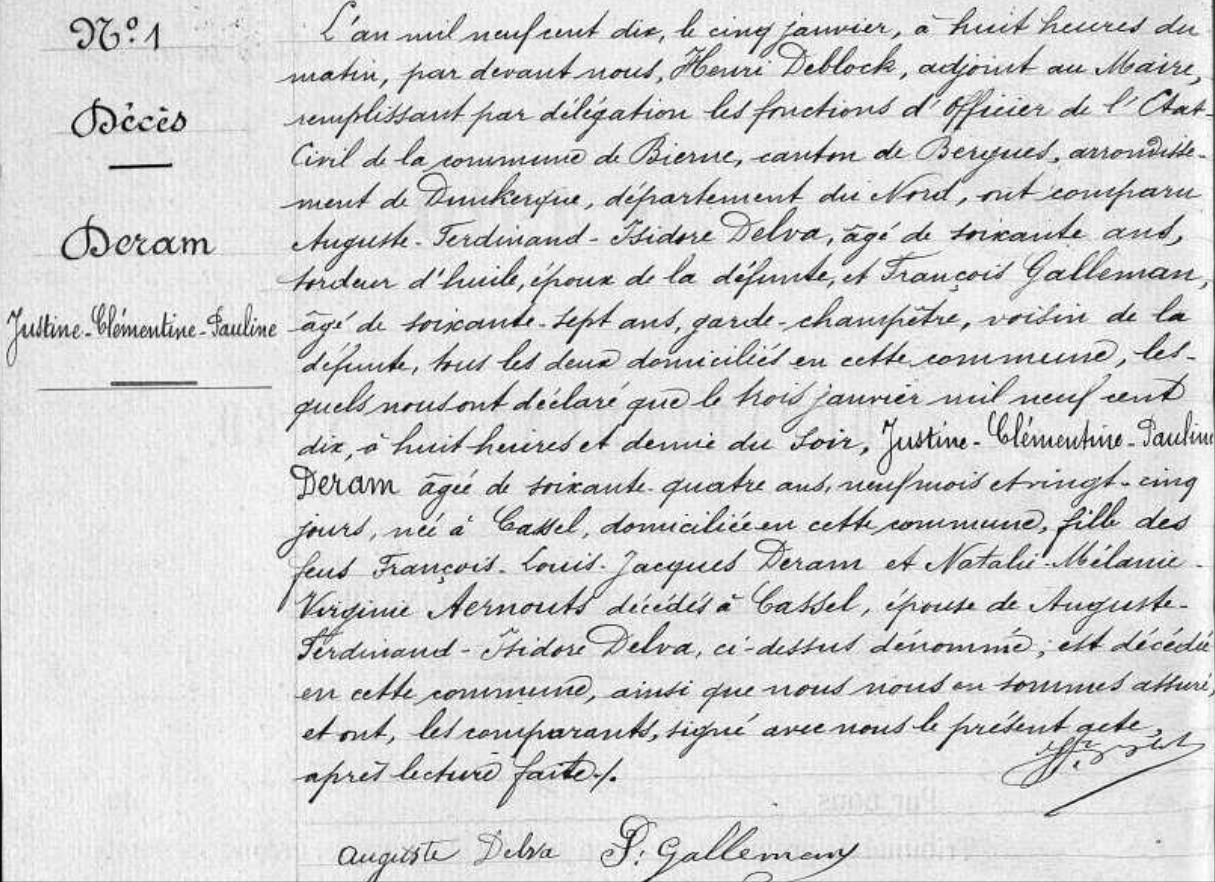 Nº 1
Décès
Deram
Justine-Clémentine-Pauline
L'an mil neuf cent dix, le cinq janvier, à huit heures du
matin, par devant nous, Henri Deblock, adjoint au Maire,
remplissant par délégation les fonctions d'Officier de l'Etat-
Civil de la commune de Bierne, canton de Bergues, arrondisse-
ment de Dunkerque, département du Nord, ont comparu
Auguste-Ferdinand-Isidore Delva, âgé de soixante ans,
tordeur d'huile, époux de la défunte, et François Galleman,
âgé de soixante-sept ans, garde-champêtre, voisin de la
défunte, tous les deux domiciliés en cette commune, les-
quels nous ont déclaré que le trois janvier mil neuf cent
dix, à huit heures et demie du soir, Justine-Clémentine-Pauline
Deram âgée de soixante-quatre ans, neuf mois et vingt-cinq
jours, née à Cassel, domiciliée en cette commune, fille des
feus François-Louis-Jacques Deram et Natalie-Mélanie-
Virginie Aernouts décédés à Cassel, épouse de Auguste-
Ferdinand-Isidore Delva, ci-dessus dénommé; est décédée
en cette commune, ainsi que nous nous en sommes assuré,
et ont, les comparants, signé avec nous le présent acte,
après lecture faite ./.
Auguste Delva F. Galleman